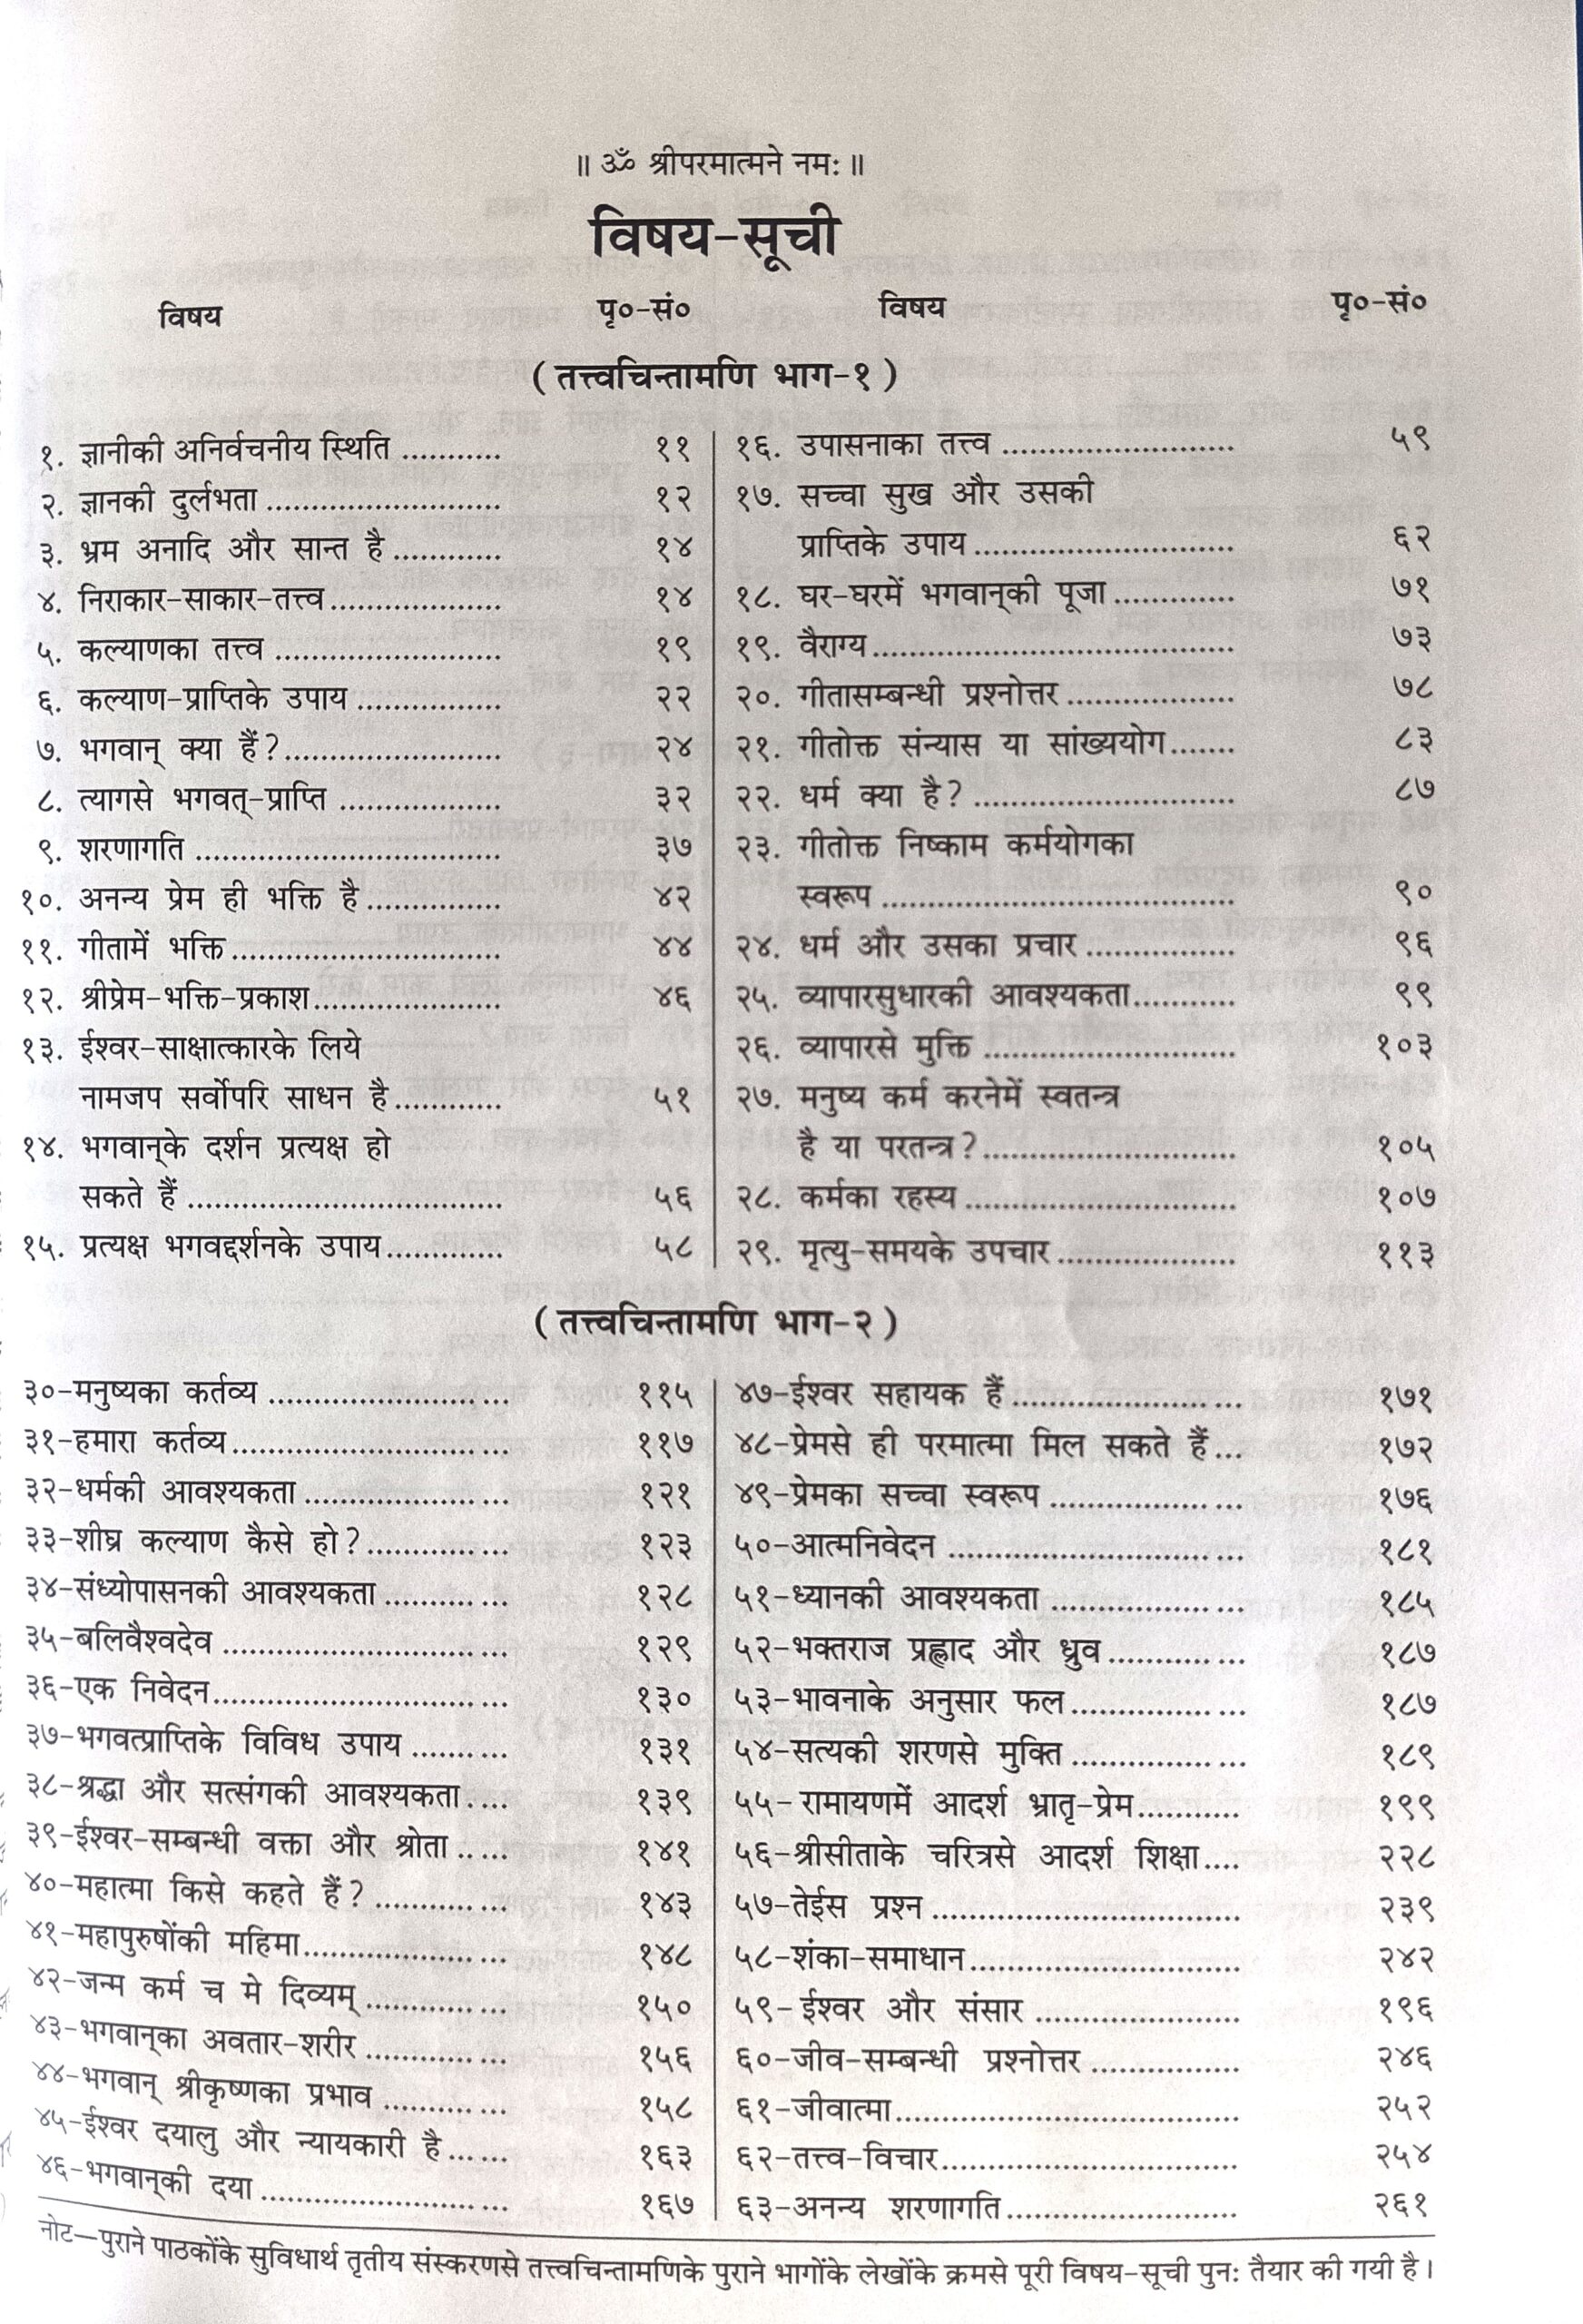 ॥ ॐ श्रीपरमात्मने नमः ॥
विषय-सूची
विषय पृ०-सं० विषय पृ०-सं०
( तत्त्वचिन्तामणि भाग-१ )
१. ज्ञानीकी अनिर्वचनीय स्थिति ........... ११
२. ज्ञानकी दुर्लभता ......................... १२
३. भ्रम अनादि और सान्त है ............ १४
४. निराकार-साकार-तत्त्व................... १४
५. कल्याणका तत्त्व ......................... १९
६. कल्याण-प्राप्तिके उपाय ................ २२
७. भगवान् क्या हैं?........................ २४
८. त्यागसे भगवत्-प्राप्ति .................. ३२
९. शरणागति .................................. ३७
१०. अनन्य प्रेम ही भक्ति है ............... ४२
११. गीतामें भक्ति .............................. ४४
१२. श्रीप्रेम-भक्ति-प्रकाश..................... ४६
१३. ईश्वर-साक्षात्कारके लिये
नामजप सर्वोपरि साधन है ............ ५१
१४. भगवान्‌के दर्शन प्रत्यक्ष हो
सकते हैं ................................... ५६
१५. प्रत्यक्ष भगवद्दर्शनके उपाय............. ५८
१६. उपासनाका तत्त्व .......................... ५९
१७. सच्चा सुख और उसकी
प्राप्तिके उपाय ............................. ६२
१८. घर-घरमें भगवान्‌की पूजा ............. ७१
१९. वैराग्य ........................................ ७३
२०. गीतासम्बन्धी प्रश्नोत्तर ................... ७८
२१. गीतोक्त संन्यास या सांख्ययोग....... ८३
२२. धर्म क्या है? ............................. ८७
२३. गीतोक्त निष्काम कर्मयोगका
स्वरूप ....................................... ९०
२४. धर्म और उसका प्रचार ................ ९६
२५. व्यापारसुधारकी आवश्यकता........... ९९
२६. व्यापारसे मुक्ति ............................ १०३
२७. मनुष्य कर्म करनेमें स्वतन्त्र
है या परतन्त्र?............................ १०५
२८. कर्मका रहस्य .............................. १०७
२९. मृत्यु-समयके उपचार .................... ११३
( तत्त्वचिन्तामणि भाग-२ )
३०-मनुष्यका कर्तव्य .......................... ११५
३१-हमारा कर्तव्य .............................. ११७
३२-धर्मकी आवश्यकता ...................... १२१
३३-शीघ्र कल्याण कैसे हो?............... १२३
३४-संध्योपासनकी आवश्यकता ............. १२८
३५-बलिवैश्वदेव ............................... १२९
३६-एक निवेदन................................ १३०
३७-भगवत्प्राप्तिके विविध उपाय .......... १३१
३८-श्रद्धा और सत्संगकी आवश्यकता..... १३९
३९-ईश्वर-सम्बन्धी वक्ता और श्रोता ..... १४१
४०-महात्मा किसे कहते हैं? .............. १४३
४१-महापुरुषोंकी महिमा...................... १४८
४२-जन्म कर्म च मे दिव्यम् ............... १५०
४३-भगवान्‌का अवतार-शरीर ............... १५६
४४-भगवान् श्रीकृष्णका प्रभाव ............. १५८
४५-ईश्वर दयालु और न्यायकारी है ...... १६३
४६-भगवान्‌की दया ........................... १६७
४७-ईश्वर सहायक हैं ........................ १७१
४८-प्रेमसे ही परमात्मा मिल सकते हैं ... १७२
४९-प्रेमका सच्चा स्वरूप ................... १७६
५०-आत्मनिवेदन .............................. १८१
५१-ध्यानकी आवश्यकता ................... १८५
५२-भक्तराज प्रह्लाद और ध्रुव.............. १८७
५३-भावनाके अनुसार फल.................. १८७
५४-सत्यकी शरणसे मुक्ति .................. १८९
५५- रामायणमें आदर्श भ्रातृ-प्रेम........... १९९
५६-श्रीसीताके चरित्रसे आदर्श शिक्षा.... २२८
५७-तेईस प्रश्न ................................. २३९
५८-शंका-समाधान............................. २४२
५९- ईश्वर और संसार ...................... १९६
६०-जीव-सम्बन्धी प्रश्नोत्तर ................ २४६
६१-जीवात्मा..................................... २५२
६२-तत्त्व-विचार................................ २५४
६३-अनन्य शरणागति ......................... २६१
नोट—पुराने पाठकोंके सुविधार्थ तृतीय संस्करणसे तत्त्वचिन्तामणिके पुराने भागोंके लेखोंके क्रमसे पूरी विषय-सूची पुनः तैयार की गयी है।